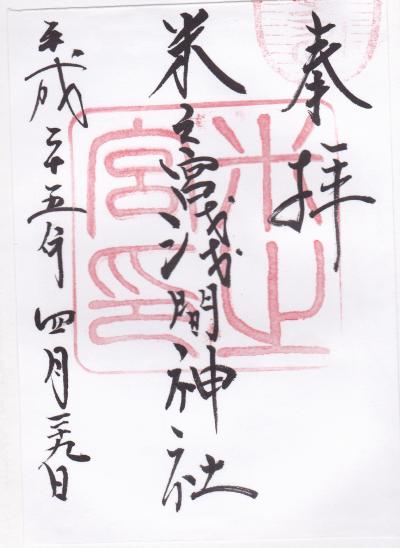 奉拝
米之宮浅間神社
平成二十五年四月二十九日
米之宮印